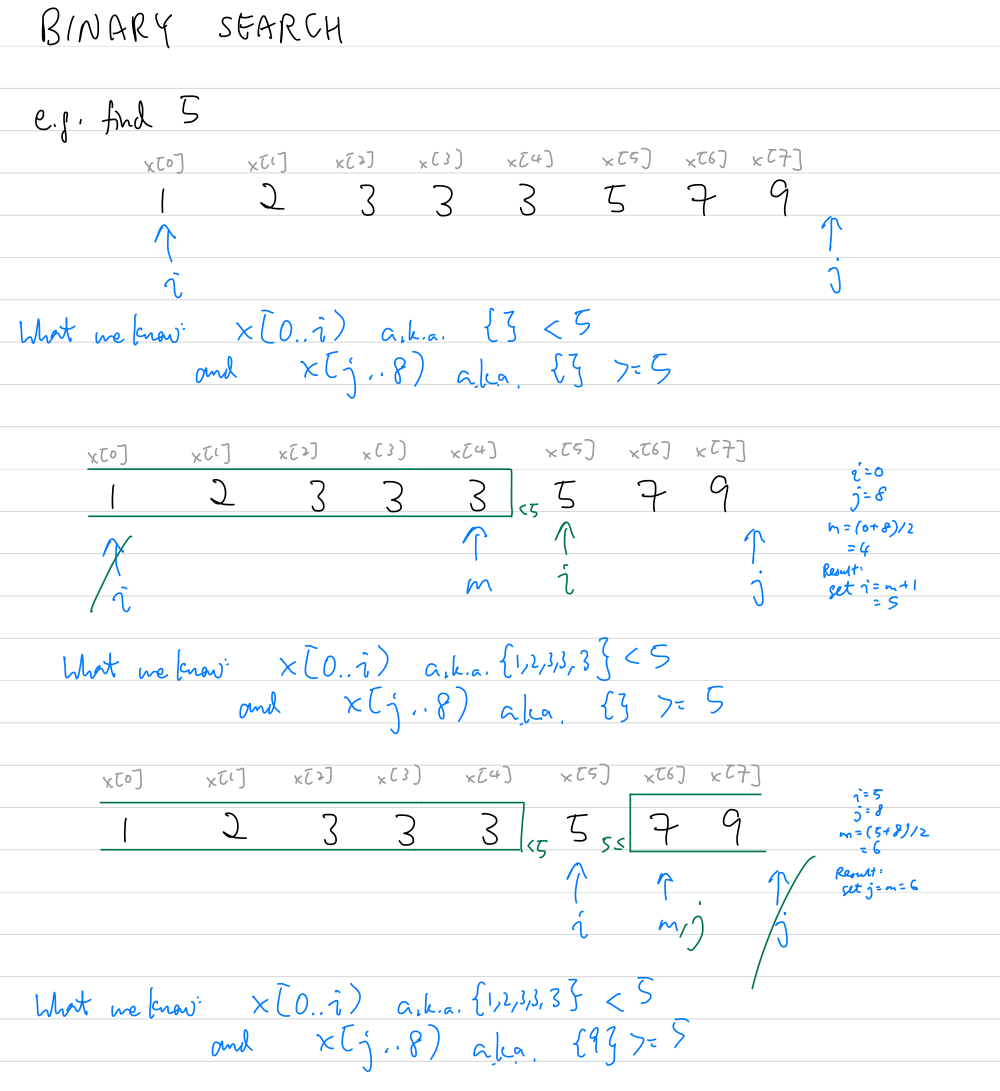 BINARY SEARCH
e.g. find 5
x[0] x[1] x[2] x[3] x[4] x[5] x[6] x[7]
1 2 3 3 3 5 7 9
↑ ↑
i j
What we know: x[0..i) a.k.a. {} < 5
and x[j..8) a.k.a. {} >= 5
x[0] x[1] x[2] x[3] x[4] x[5] x[6] x[7]
1 2 3 3 3 <5 5 7 9
↑ ↑ ↑ ↑
i m i j
i=0
j=8
m=(0+8)/2
=4
Result:
set i=m+1
=5
What we know: x[0..i) a.k.a. {1,2,3,3,3} < 5
and x[j..8) a.k.a. {} >= 5
x[0] x[1] x[2] x[3] x[4] x[5] x[6] x[7]
1 2 3 3 3 <5 5 5≤ 7 9
↑ ↑ ↑
i m,j j
i=5
j=8
m=(5+8)/2
=6
Result:
set j=m=6
What we know: x[0..i) a.k.a. {1,2,3,3,3} < 5
and x[j..8) a.k.a. {9} >= 5